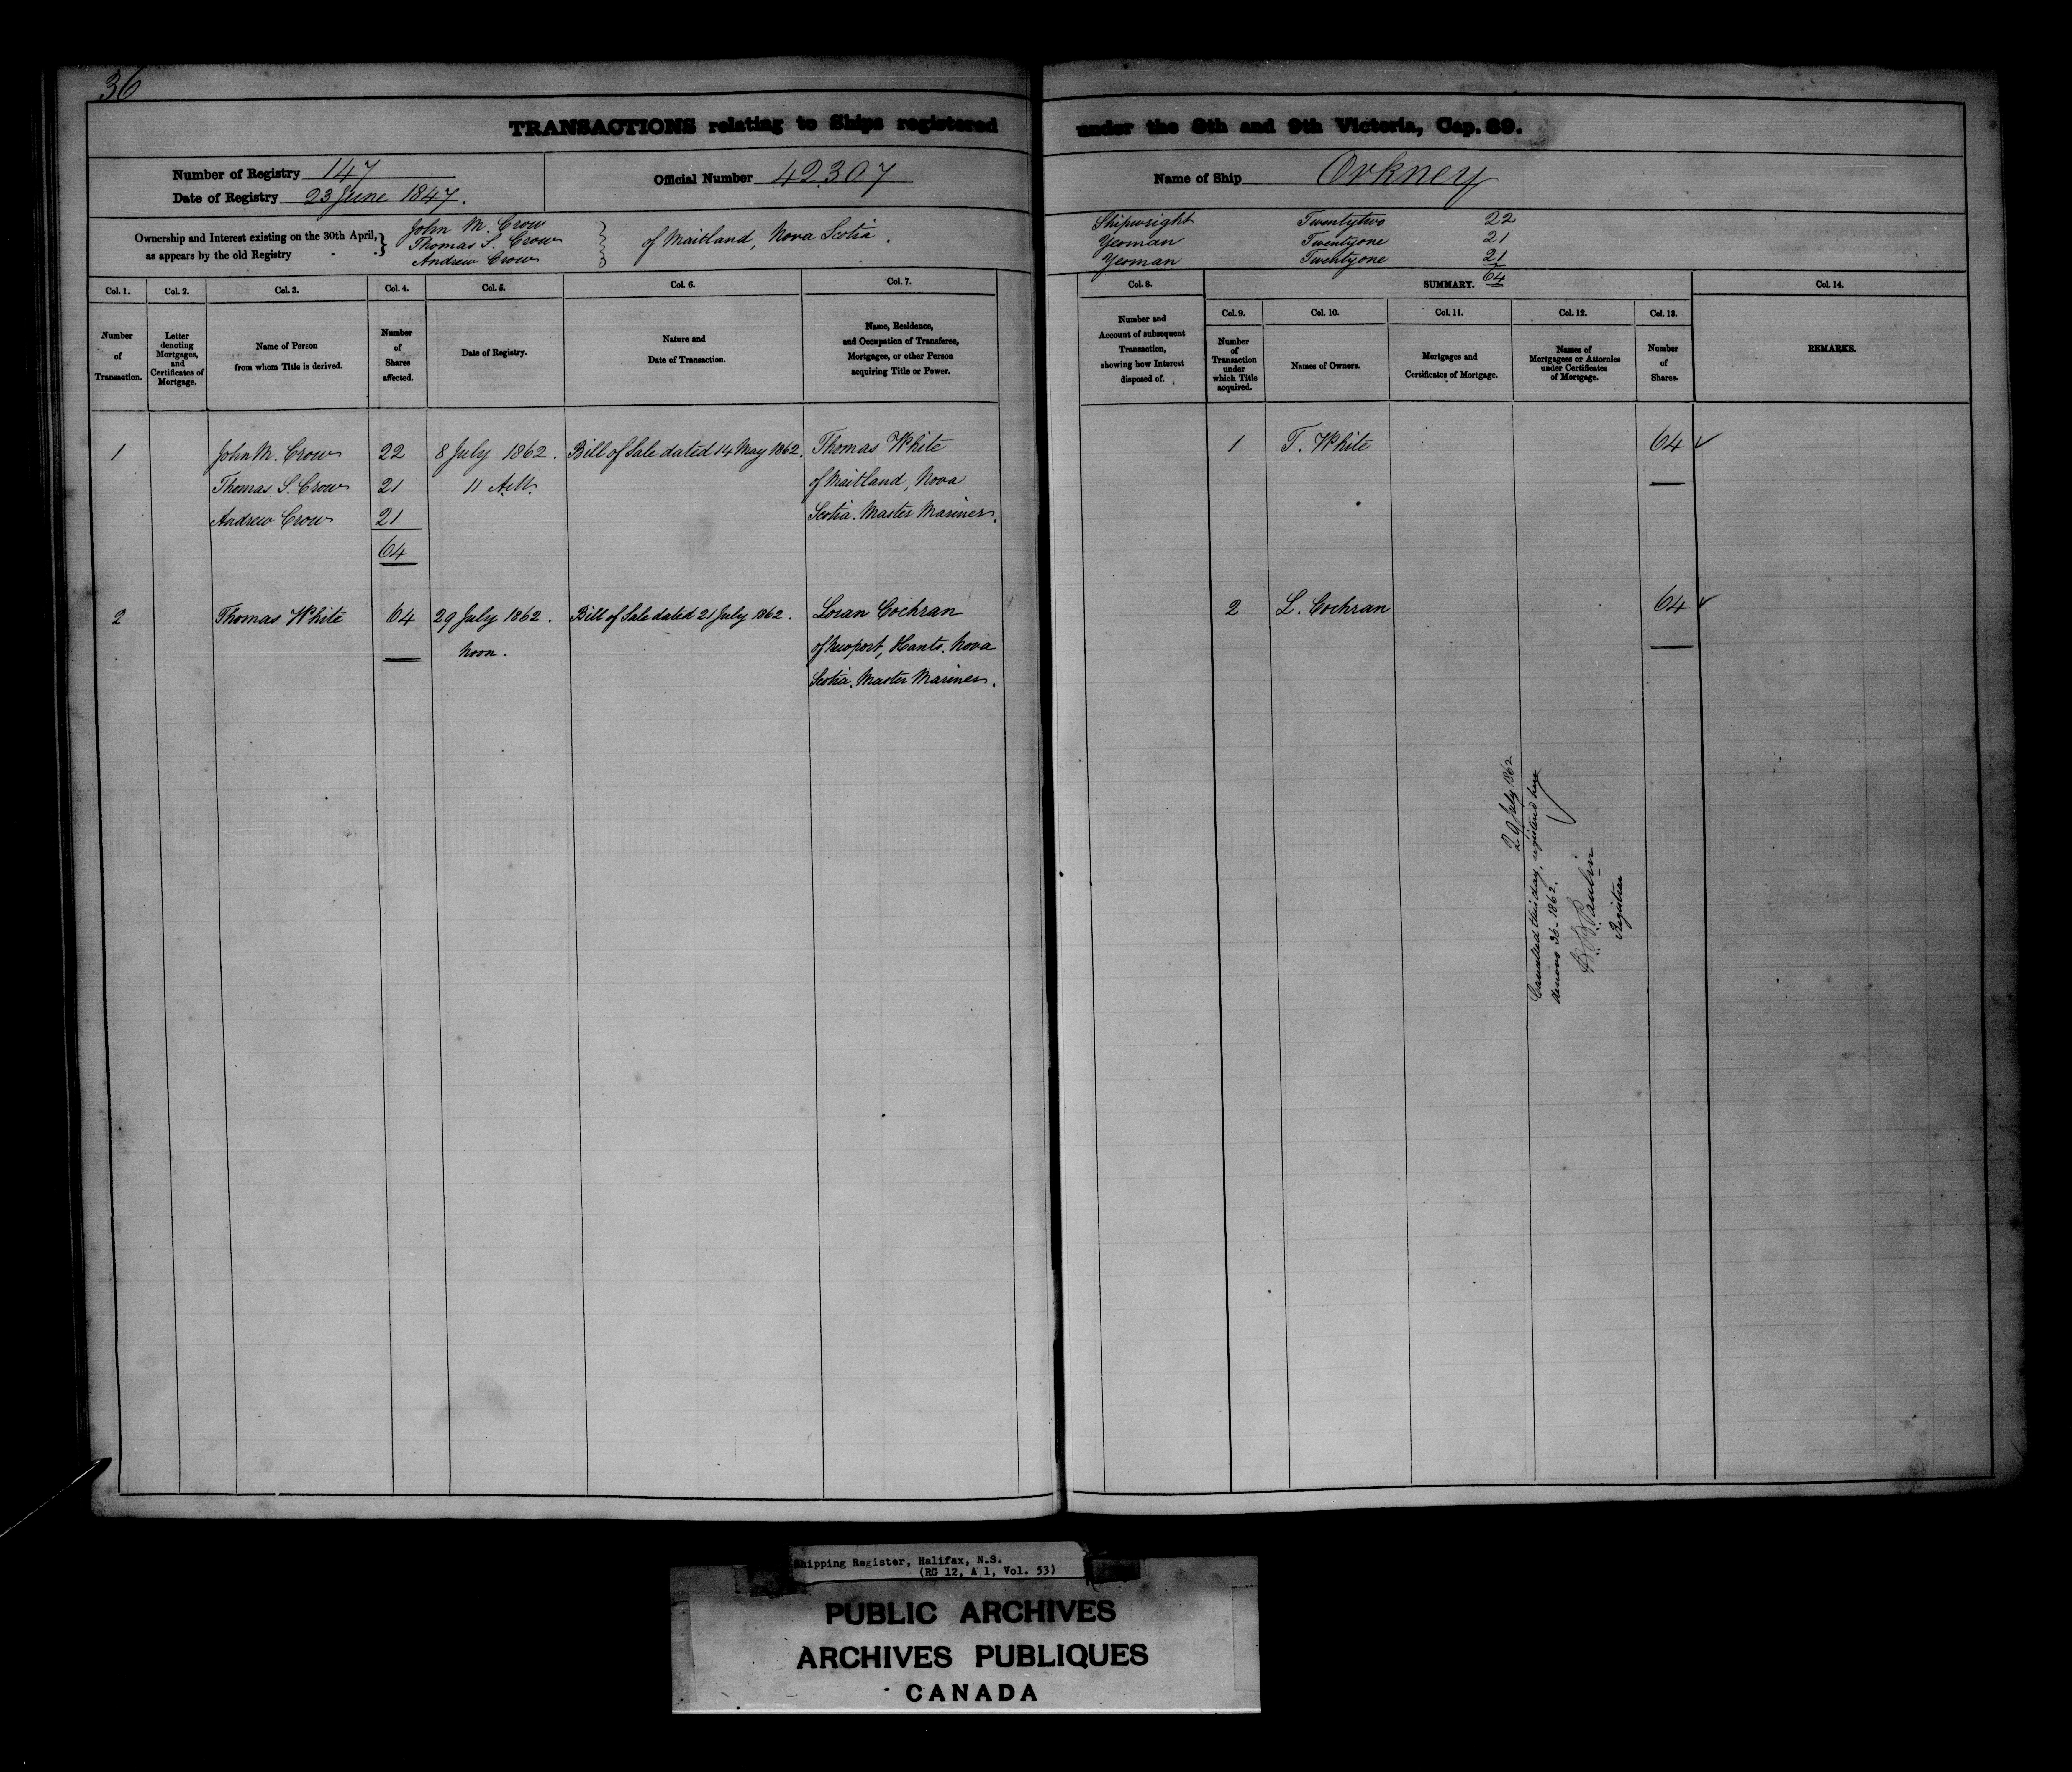 36
TRANSACTIONS relating to Ships registered under the 8th and 9th Victoria, Cap. 89.
Number of Registry 147
Date of Registry 23 June 1847.
Official Number 42307
Name of Ship Orkney
Ownership and Interest existing on the 30th April,
as appears by the old Registry
John M. Crow
Thomas S. Crow
Andrew Crow
of Maitland, Nova Scotia.
Shipwright Twentytwo 22
Yeoman Twentyone 21
Yeoman Twentyone 21
64
Col. 1.
Number
of
Transaction.
Col. 2.
Letter
denoting
Mortgages,
and
Certificates of
Mortgage.
Col. 3.
Name of Person
from whom Title is derived.
Col. 4.
Number
of
Shares
affected.
Col. 5.
Date of Registry.
Col. 6.
Nature and
Date of Transaction.
Col. 7.
Name, Residence,
and Occupation of Transferee,
Mortgagee, or other Person
acquiring Title or Power.
Col. 8.
Number and
Account of subsequent
Transaction,
showing how Interest
disposed of.
SUMMARY.
Col. 9.
Number
of
Transaction
under
which Title
acquired.
Col. 10.
Names of Owners.
Col. 11.
Mortgages and
Certificates of Mortgage.
Col. 12.
Names of
Mortgagees or Attornies
under Certificates
of Mortgage.
Col. 13.
Number
of
Shares.
Col. 14.
REMARKS.
1 John M. Crow 22 8 July 1862. Bill of Sale dated 14 May 1862. Thomas White 1 T. White 64
Thomas S. Crow 21 11 A.M. of Maitland, Nova
Andrew Crow 21 Scotia. Master Mariner.
64
2 Thomas White 64 29 July 1862. Bill of Sale dated 21 July 1862. Loran Cochran 2 L. Cochran 64
Noon. of Newport, Hants. Nova
Scotia. Master Mariner.
29 July 1862
Cancelled this day, registered here
denovo 36-1862.
Registrar
Shipping Register, Halifax, N.S.
(RG 12, A 1, Vol. 53)
PUBLIC ARCHIVES
ARCHIVES PUBLIQUES
CANADA